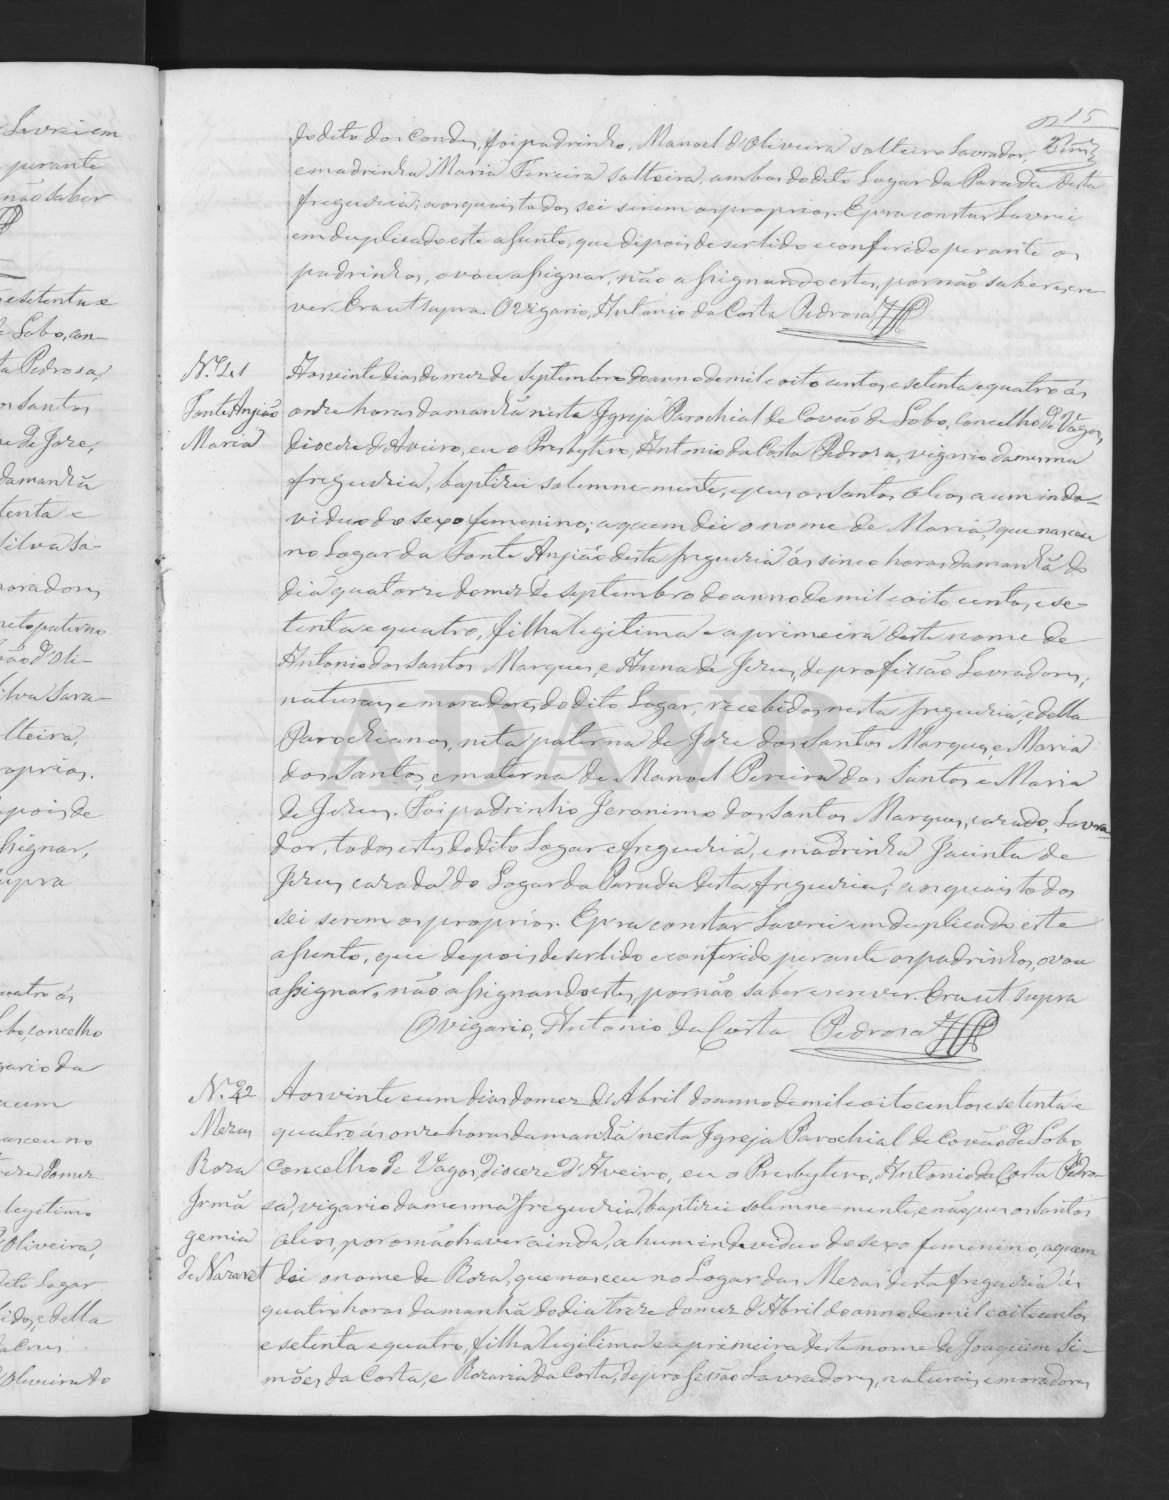 15
do dito dos Condes, foi padrinho, Manoel d'Oliveira solteiro Lavrador,
e madrinha Maria Ferreira solteira, ambos do dito Lugar da Parada desta
freguezia; aos quais todos sei serem os proprios. E pra constar Lavrei
em duplicado este assento, que dipois de ser lido e conferido perante os
padrinhos, o vou assignar, não assignando estes, por não saber escre-
ver. Era ut supra. O Vigario, Antonio da Costa Pedrosa
N.º 41
Fonte Anjião
Maria
Aos vinte dias do mez de Septembro do anno de mil e oito centos e setenta e quatro ás
onze horas da manhã nesta Igreja Parochial de Covão do Lobo, concelho de Vagos,
Diocese d'Aveiro, eu o Presbytero, Antonio da Costa Pedrosa, vigario da mesma
freguezia, baptizei solemne-mente, e puz os Santos Oleos a um indi-
viduo do sexo femenino; a quem dei o nome de Maria, que nasceu
no Lugar da Fonte Anjião desta freguezia ás sinco horas da manhã do
dia quatorze do mez de Septembro do anno de mil e oito centos, e se-
tenta e quatro, filha legitima e a primeira deste nome de
Antonio dos Santos Marques, e Anna de Jezus, de profissão Lavradores,
naturaes e moradores do dito Lugar, recebidos nesta freguezia, e della
Parochianos, neta paterna de Joze dos Santos Marques, e Maria
dos Santos, e materna de Manoel Pereira dos Santos e Maria
de Jezus. Foi padrinho Jeronimo dos Santos Marques, cazado, Lavra-
dor, todos estes do dito Lugar e freguezia, e madrinha Jacinta de
Jezus, cazada do Lugar da Parada desta freguezia; aos quais todos
sei serem os proprios. E pra constar Lavrei em duplicado este
assento, que depois de ser lido e conferido perante os padrinhos, o vou
assignar, não assignando estes, por não saber escrever. Era ut supra
O vigario, Antonio da Costa Pedrosa
N.º 42
Mezas
Roza
Irmã
gemia
de Nazaret
Aos vinte e um dias do mez d'Abril do anno de mil e oito centos e setenta e
quatro ás onze horas da manhã nesta Igreja Parochial de Covão do Lobo
concelho de Vagos, Diocese d'Aveiro, eu o Presbytero, Antonio da Costa Pedro-
sa, vigario da mesma freguezia, baptizei solemne-mente, e não puz os Santos
Oleos, por os não haver ainda, a hum individuo do sexo femenino, a quem
dei o nome de Roza, que nasceu no Lugar das Mezas desta freguezia ás
quatro horas da manhã do dia treze do mez d'Abril do anno de mil e oito centos
e setenta e quatro, filha legitima e a primeira deste nome de Joaquim Si-
mões da Costa, e Rozaria da Costa, de profissão Lavradores, naturais, e moradores